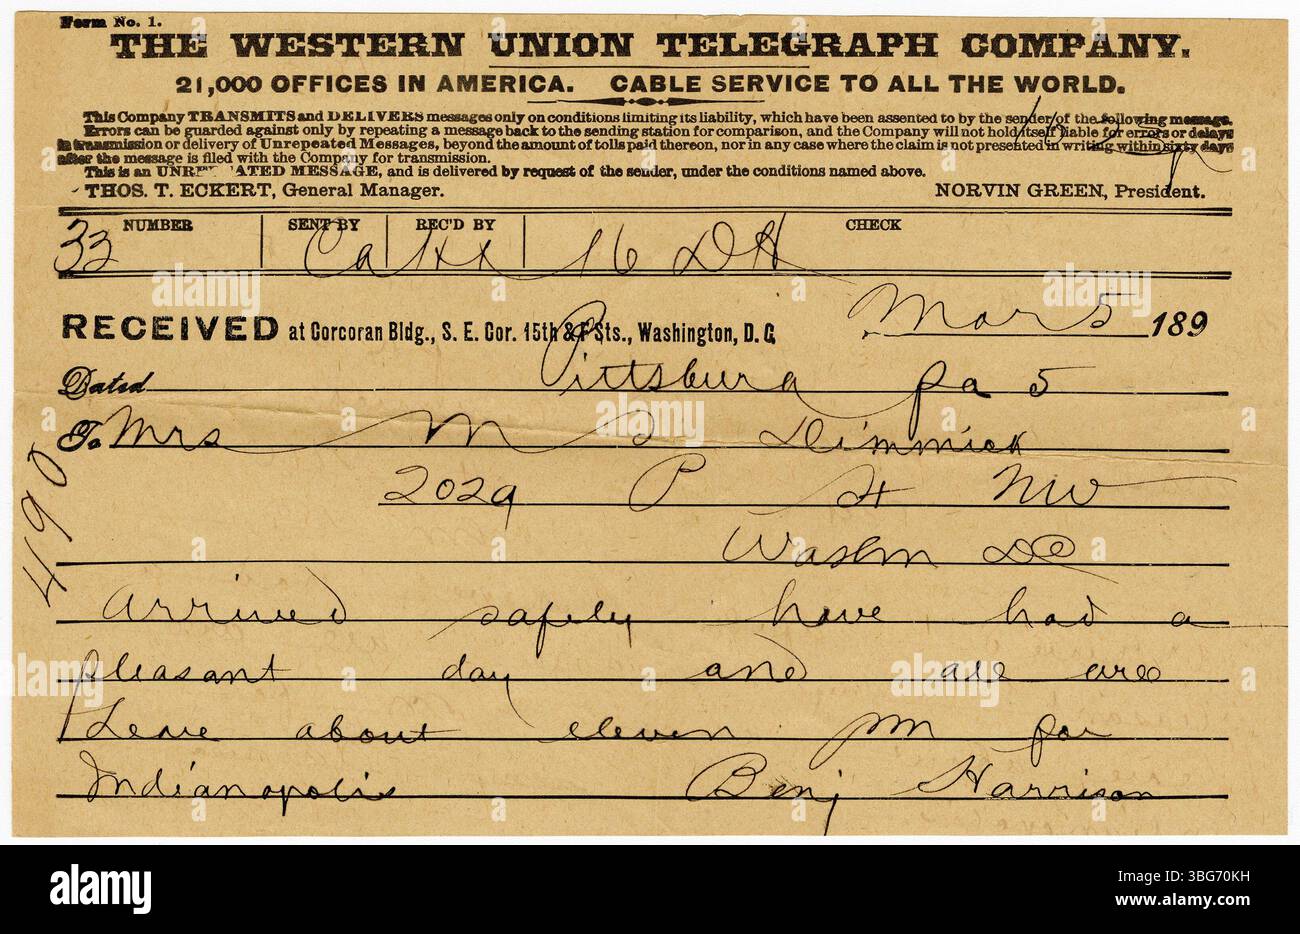 Form No. 1.
THE WESTERN UNION TELEGRAPH COMPANY.
21,000 OFFICES IN AMERICA. CABLE SERVICE TO ALL THE WORLD.
This Company TRANSMITS and DELIVERS messages only on conditions limiting its liability, which have been assented to by the sender of the following message.
Errors can be guarded against only by repeating a message back to the sending station for comparison, and the Company will not hold itself liable for errors or delays
in transmission or delivery of Unrepeated Messages, beyond the amount of tolls paid thereon, nor in any case where the claim is not presented in writing within sixty days
after the message is filed with the Company for transmission.
This is an UNREPEATED MESSAGE, and is delivered by request of the sender, under the conditions named above.
THOS. T. ECKERT, General Manager. NORVIN GREEN, President.
NUMBER SENT BY REC'D BY CHECK
33 Ca 16 DH
RECEIVED at Corcoran Bldg., S. E. Cor. 15th & F Sts., Washington, D. C. Mar 5 189
Dated Pittsburg Pa 5
To Mrs M S Dimmick
2029 P St NW
Washn DC
490
Arrived safely have had a
pleasant day and are
Leave about eleven pm for
Indianapolis Benj Harrison
alamy
Image ID: 3BG70KH
www.alamy.com